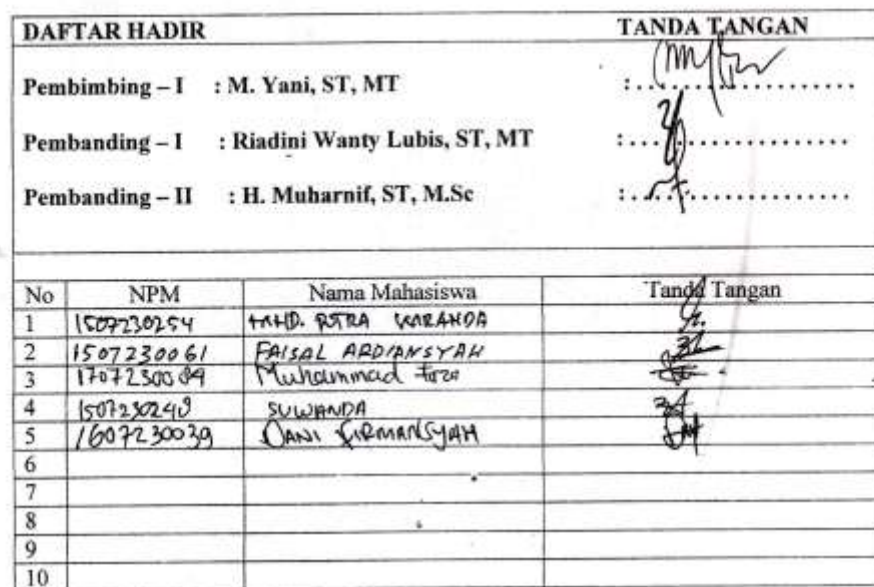 DAFTAR HADIR TANDA TANGAN
Pembimbing – I : M. Yani, ST, MT :....................
Pembanding – I : Riadini Wanty Lubis, ST, MT :....................
Pembanding – II : H. Muharnif, ST, M.Sc :....................
No NPM Nama Mahasiswa Tanda Tangan
1 1507230254 MHD. PUTRA
2 1507230061 FAISAL ARDIANSYAH
3 Muhammad
4 SUWANDA
5 1607230039 DANI FIRMANSYAH
6
7
8
9
10